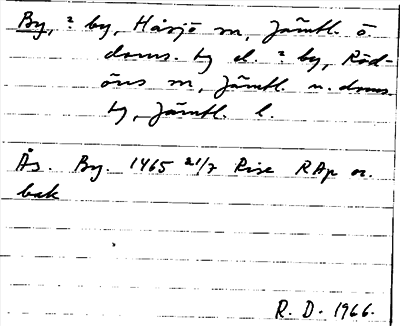 By, ? by, Håsjö sn, Jämtl. ö.
doms. tg el. ? by, Röd-
öns sn, Jämtl. n. doms.
tg, Jämtl. l.
Ås. By. 1465 21/7 Rise RAp or.
bak
R. D. 1966.